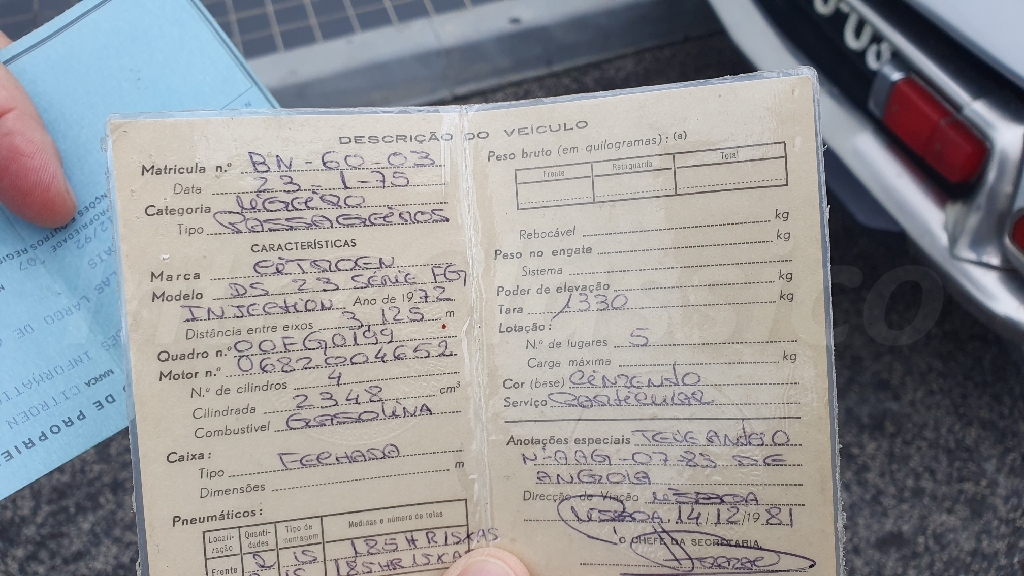 DESCRIÇÃO DO VEÍCULO
Matrícula n.º BN-60-03
Data 23-1-75
Categoria LIGEIRO
Tipo PASSAGEIROS
CARACTERÍSTICAS
Marca CITROEN
Modelo DS 23 SERIE FG
INJECTION Ano de 1972
Distância entre eixos 3,125 m
Quadro n.º 00FG0199
Motor n.º 0682004652
N.º de cilindros 4
Cilindrada 2348 cm³
Combustível GASOLINA
Caixa:
Tipo FECHADA
Dimensões m
Pneumáticos:
Locali-zação Quanti-dades Tipo de montagem Medidas e número de telas
Frente 2 IS 185HR15XAS
IS 185HR15XA
Peso bruto (em quilogramas): (a)
Frente Retaguarda Total
Rebocável kg
Peso no engate kg
Sistema
Poder de elevação kg
Tara 1330 kg
Lotação:
N.º de lugares 5
Carga máxima kg
Cor (base) CINZENTO
Serviço PARTICULAR
Anotações especiais TEVE ANT.º
N.º AAG-07-83 DE
ANGOLA
Direcção de Viação LISBOA
LISBOA, 14/12/1981
O CHEFE DA SECRETARIA
DE PROPRIE
MARCA CITROEN